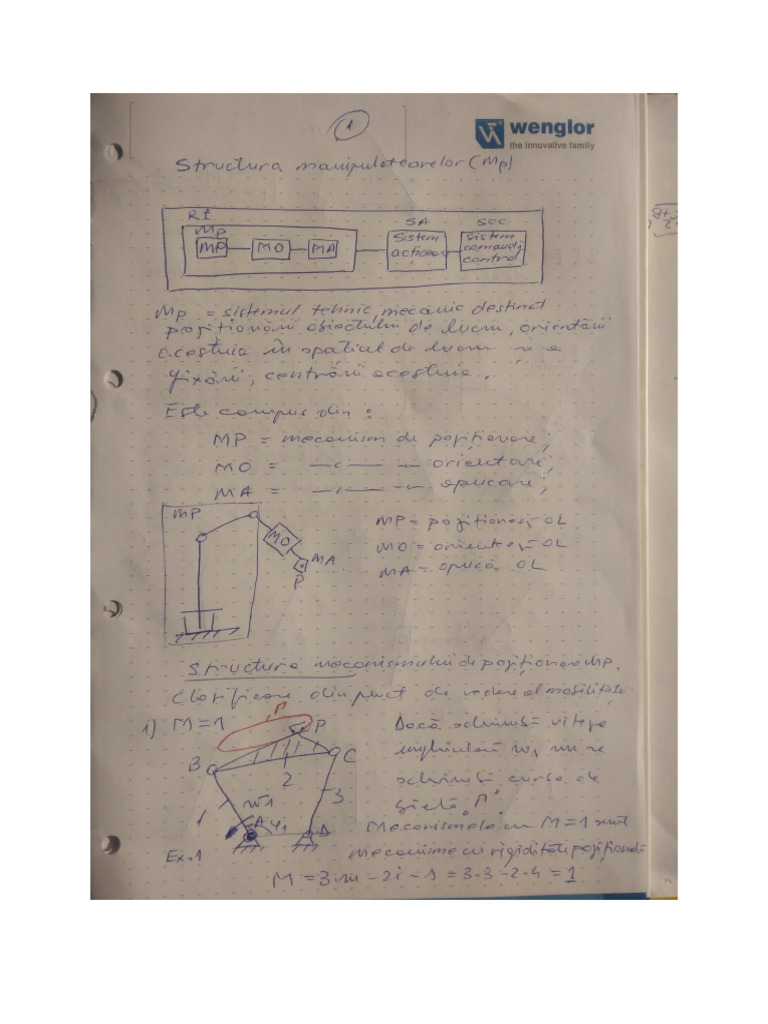 1
wenglor
the innovative family
Structura manipulatoarelor (Mp)
RI
Mp
MP MO MA
SA
Sistem
actionare
SCC
Sistem
comandă
control
Mp = sistemul tehnic, mecanic destinat
poziționării obiectului de lucru, orientării
acestuia în spațiul de lucru și a
fixării, centrării acestuia.
Este compus din:
MP = mecanism de poziționare;
MO = —〃— —〃— orientare;
MA = —〃— —〃— apucare;
MP
MO
MA
P
MP = poziționează OL
MO = orientează OL
MA = apucă OL
Structura mecanismului de poziționare MP.
Clasificare din punct de vedere al mobilității
1) M = 1
Γ
P
B
C
2
3
1
ω1
A
φ1
D
Ex. 1
Dacă schimb viteza
unghiulară ω1 nu se
schimbă curba de
bielă „Γ”.
Mecanismele cu M = 1 sunt
mecanisme cu rigiditate pozițională
M = 3·m - 2i - s = 3·3 - 2·4 = 1